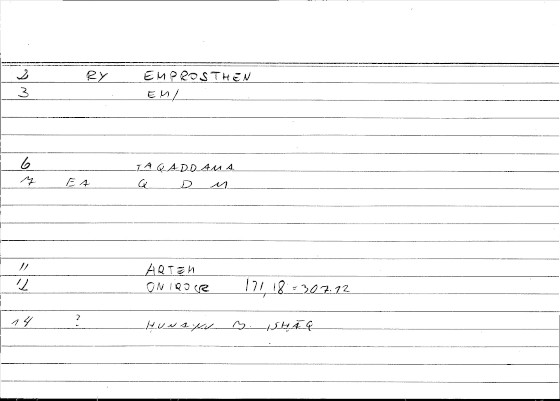 2 RY EMPROSTHEN
3 EM/
6 TAQADDAMA
7 EA Q D M
11 ARTEM
12 ONIROCR 171,18 = 307.12
14 ? HUNAYN B. ISHĀQ